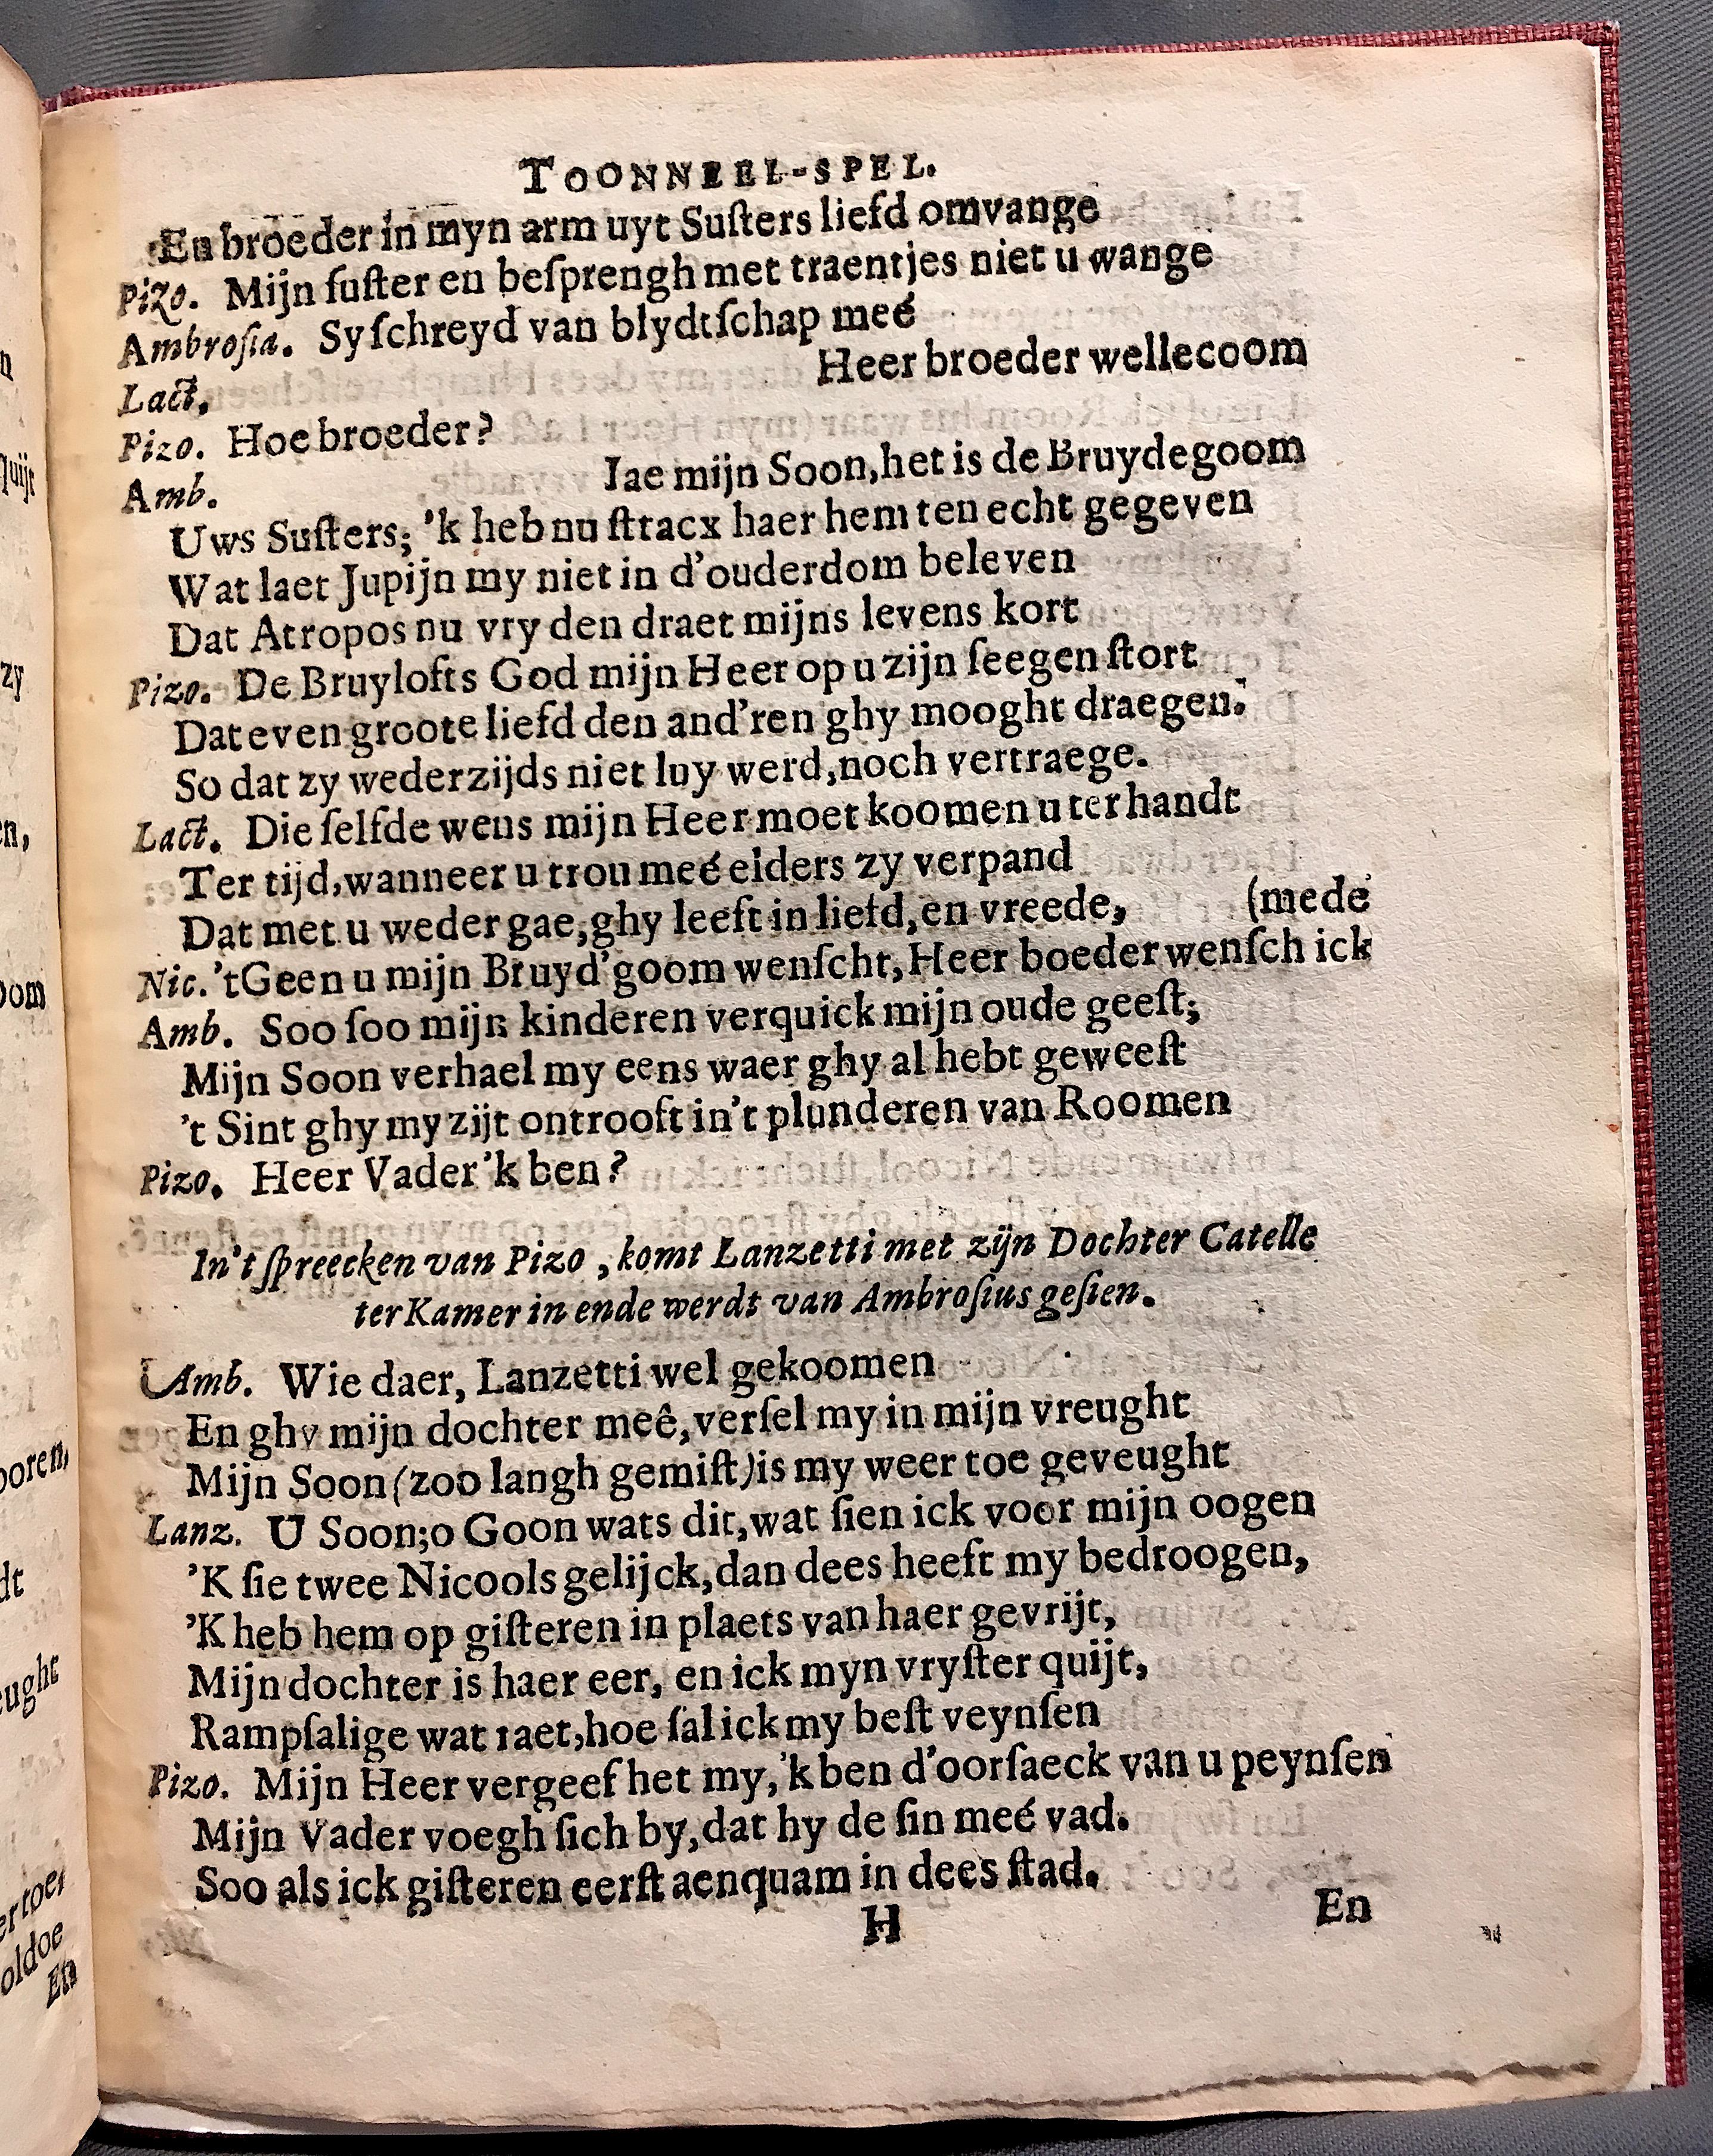 TOONNEEL-SPEL.
En broeder in myn arm uyt Suſters liefd omvange
Pizo. Mijn ſuſter en beſprengh met traentjes niet u wange
Ambroſia. Sy ſchreyd van blydtſchap meé
Lact. Heer broeder wellecoom
Pizo. Hoe broeder?
Amb. Jae mijn Soon, het is de Bruydegoom
Uws Suſters; 'k heb nu ſtracx haer hem ten echt gegeven
Wat laet Jupijn my niet in d'ouderdom beleven
Dat Atropos nu vry den draet mijns levens kort
Pizo. De Bruylofts God mijn Heer op u zijn ſeegen ſtort
Dat even groote liefd den and'ren ghy mooght draegen.
So dat zy wederzijds niet luy werd, noch vertraege.
Lact. Die ſelfde wens mijn Heer moet koomen u ter handt
Ter tijd, wanneer u trou meé elders zy verpand
Dat met u weder gae, ghy leeft in liefd, en vreede, (mede
Nic. 't Geen u mijn Bruyd'goom wenſcht, Heer boeder wenſch ick
Amb. Soo ſoo mijn kinderen verquick mijn oude geeſt;
Mijn Soon verhael my eens waer ghy al hebt geweeſt
't Sint ghy my zijt ontrooft in't plunderen van Roomen
Pizo. Heer Vader 'k ben?
In't ſpreecken van Pizo, komt Lanzetti met zijn Dochter Catelle
ter Kamer in ende werdt van Ambroſius geſien.
Amb. Wie daer, Lanzetti wel gekoomen
En ghy mijn dochter meê, verſel my in mijn vreught
Mijn Soon (zoo langh gemiſt) is my weer toe geveught
Lanz. U Soon; o Goon wats dit, wat ſien ick voor mijn oogen
'K ſie twee Nicools gelijck, dan dees heeft my bedroogen,
'K heb hem op giſteren in plaets van haer gevrijt,
Mijn dochter is haer eer, en ick myn vryſter quijt,
Rampſalige wat raet, hoe ſal ick my beſt veynſen
Pizo. Mijn Heer vergeef het my, 'k ben d'oorſaeck van u peynſen
Mijn Vader voegh ſich by, dat hy de ſin meé vad.
Soo als ick giſteren eerſt aenquam in dees ſtad.
H En